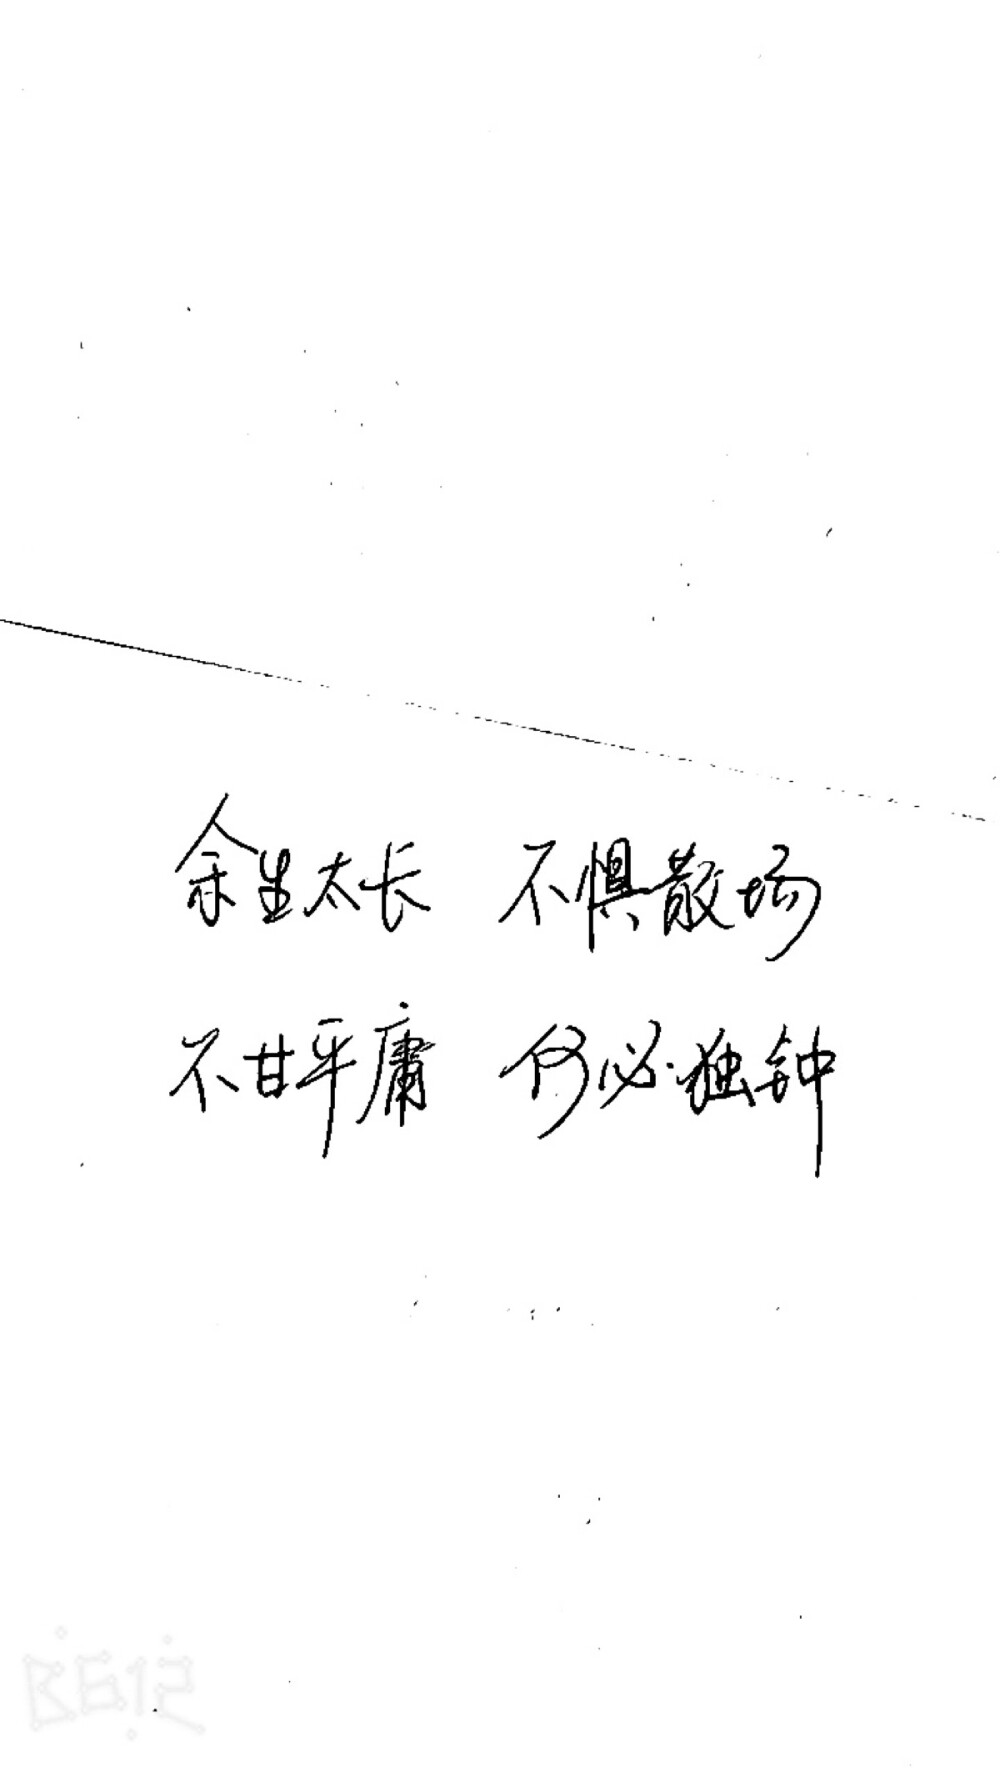 余生太长 不惧散场
不甘平庸 何必独钟
B612